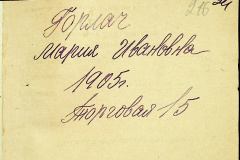 Горлач
Мария Ивановна
1905г.
Торговая 15